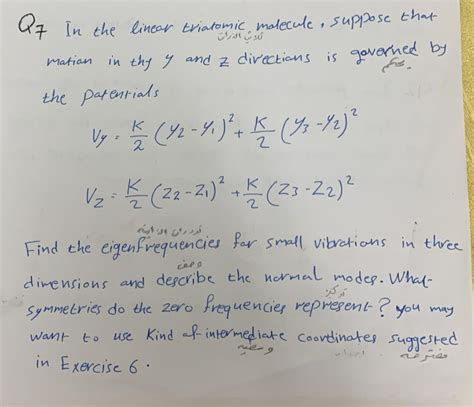 Q7 In the linear triatomic molecule, suppose that
ثلاثي الذرات
motion in thy y and z directions is governed by
the potentials
Vy = K/2 (y2 - y1)² + K/2 (y3 - y2)²
Vz = K/2 (z2 - z1)² + K/2 (z3 - z2)²
Find the eigenfrequencies for small vibrations in three
وصف
dimensions and describe the normal modes. What
symmetries do the zero frequencies represent? you may
want to use kind of intermediate coordinates suggested
in Exercise 6.